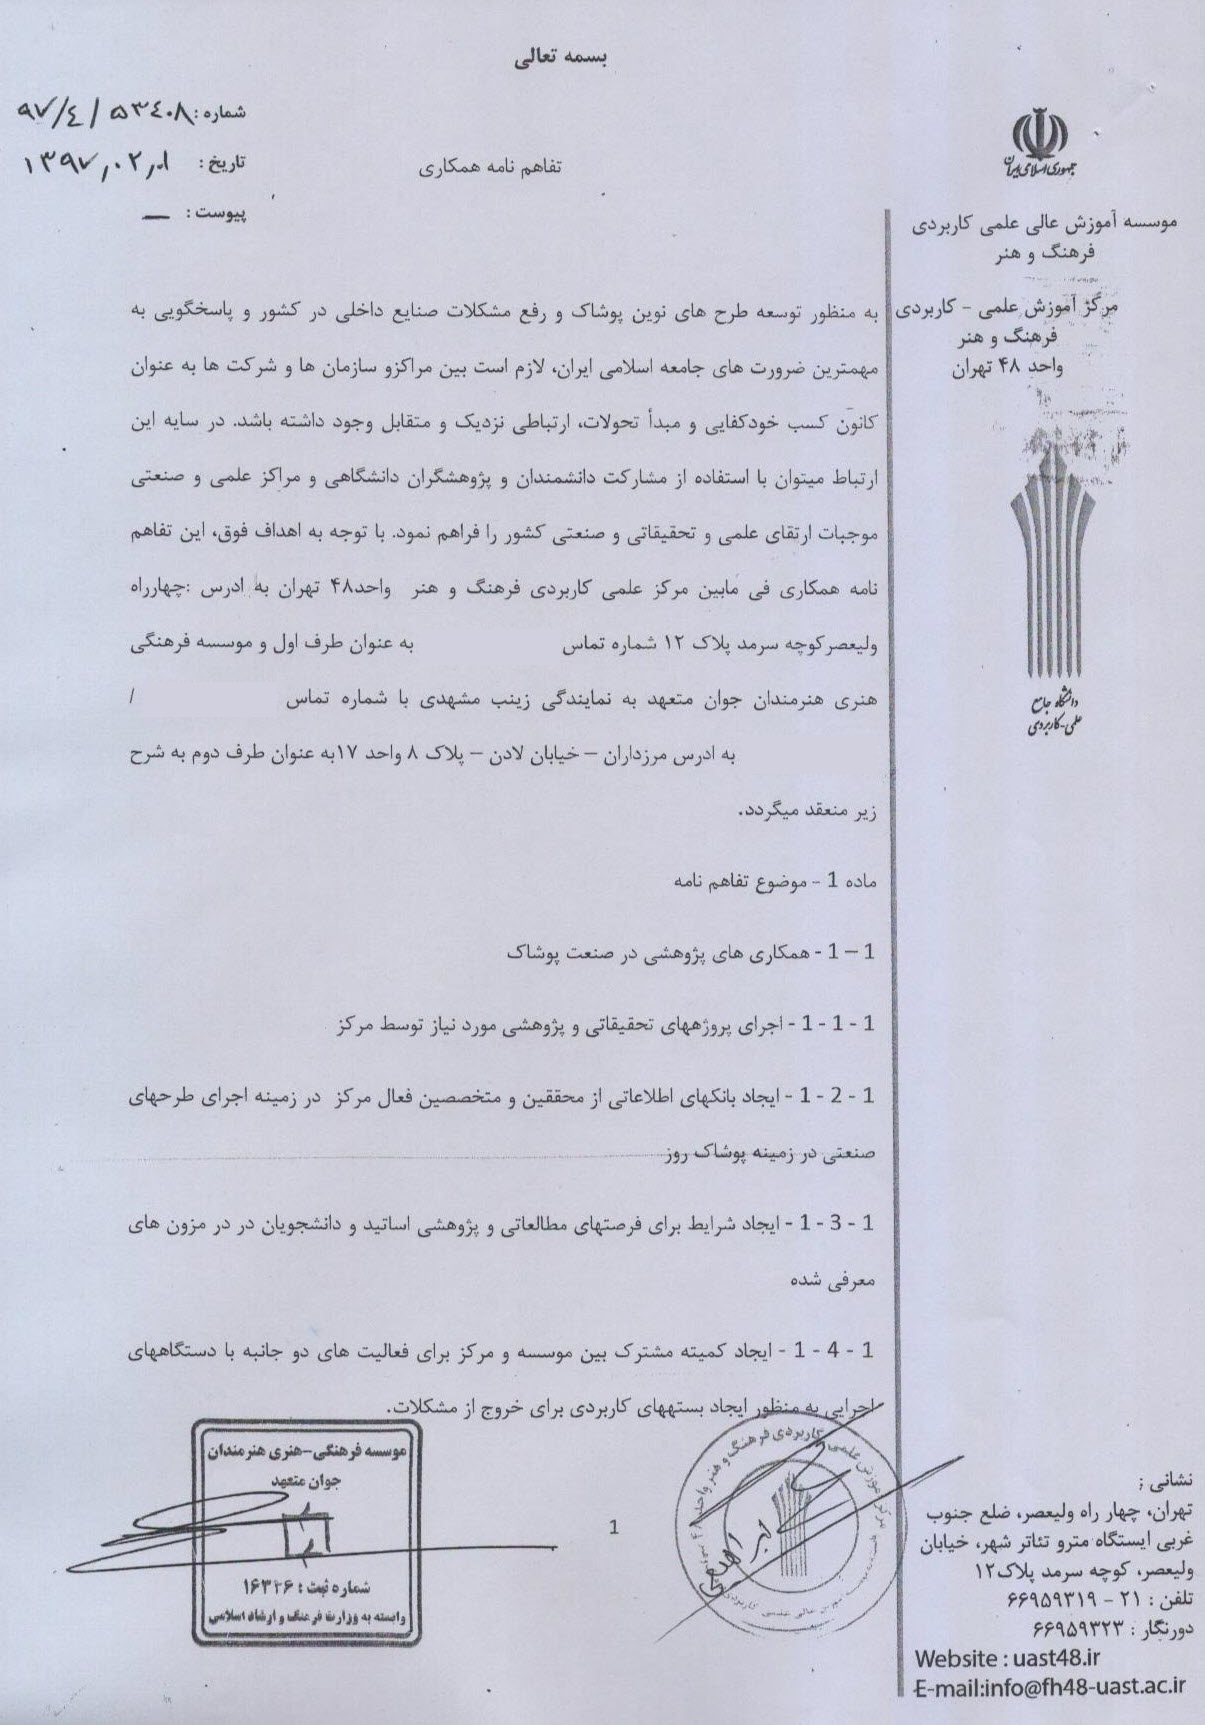 بسمه تعالی
شماره : ۹۷/٤/٥٣٤٠٨
تاریخ : ۱۳۹۷,۰۲,۰۱
پیوست : —
تفاهم نامه همکاری
جمهوری اسلامی ایران
موسسه آموزش عالی علمی کاربردی
فرهنگ و هنر
مرکز آموزش علمی - کاربردی
فرهنگ و هنر
واحد ۴۸ تهران
دانشگاه جامع
علمی-کاربردی
به منظور توسعه طرح های نوین پوشاک و رفع مشکلات صنایع داخلی در کشور و پاسخگویی به
مهمترین ضرورت های جامعه اسلامی ایران، لازم است بین مراکزو سازمان ها و شرکت ها به عنوان
کانون کسب خودکفایی و مبدأ تحولات، ارتباطی نزدیک و متقابل وجود داشته باشد. در سایه این
ارتباط میتوان با استفاده از مشارکت دانشمندان و پژوهشگران دانشگاهی و مراکز علمی و صنعتی
موجبات ارتقای علمی و تحقیقاتی و صنعتی کشور را فراهم نمود. با توجه به اهداف فوق، این تفاهم
نامه همکاری فی مابین مرکز علمی کاربردی فرهنگ و هنر واحد۴۸ تهران به ادرس :چهارراه
ولیعصرکوچه سرمد پلاک ۱۲ شماره تماس به عنوان طرف اول و موسسه فرهنگی
هنری هنرمندان جوان متعهد به نمایندگی زینب مشهدی با شماره تماس /
به ادرس مرزداران – خیابان لادن – پلاک ۸ واحد ۱۷به عنوان طرف دوم به شرح
زیر منعقد میگردد.
ماده 1 - موضوع تفاهم نامه
1 – 1 - همکاری های پژوهشی در صنعت پوشاک
1 - 1 - 1 - اجرای پروژههای تحقیقاتی و پژوهشی مورد نیاز توسط مرکز
1 - 2 - 1 - ایجاد بانکهای اطلاعاتی از محققین و متخصصین فعال مرکز در زمینه اجرای طرحهای
صنعتی در زمینه پوشاک روز
1 - 3 - 1 - ایجاد شرایط برای فرصتهای مطالعاتی و پژوهشی اساتید و دانشجویان در در مزون های
معرفی شده
1 - 4 - 1 - ایجاد کمیته مشترک بین موسسه و مرکز برای فعالیت های دو جانبه با دستگاههای
اجرایی به منظور ایجاد بستههای کاربردی برای خروج از مشکلات.
موسسه فرهنگی-هنری هنرمندان
جوان متعهد
شماره ثبت : ۱۶۳۲۶
وابسته به وزارت فرهنگ و ارشاد اسلامی
1
نشانی ;
تهران، چهار راه ولیعصر، ضلع جنوب
غربی ایستگاه مترو تئاتر شهر، خیابان
ولیعصر، کوچه سرمد پلاک۱۲
تلفن : ۲۱ - ۶۶۹۵۹۳۱۹
دورنگار : ۶۶۹۵۹۳۲۳
Website : uast48.ir
E-mail:info@fh48-uast.ac.ir